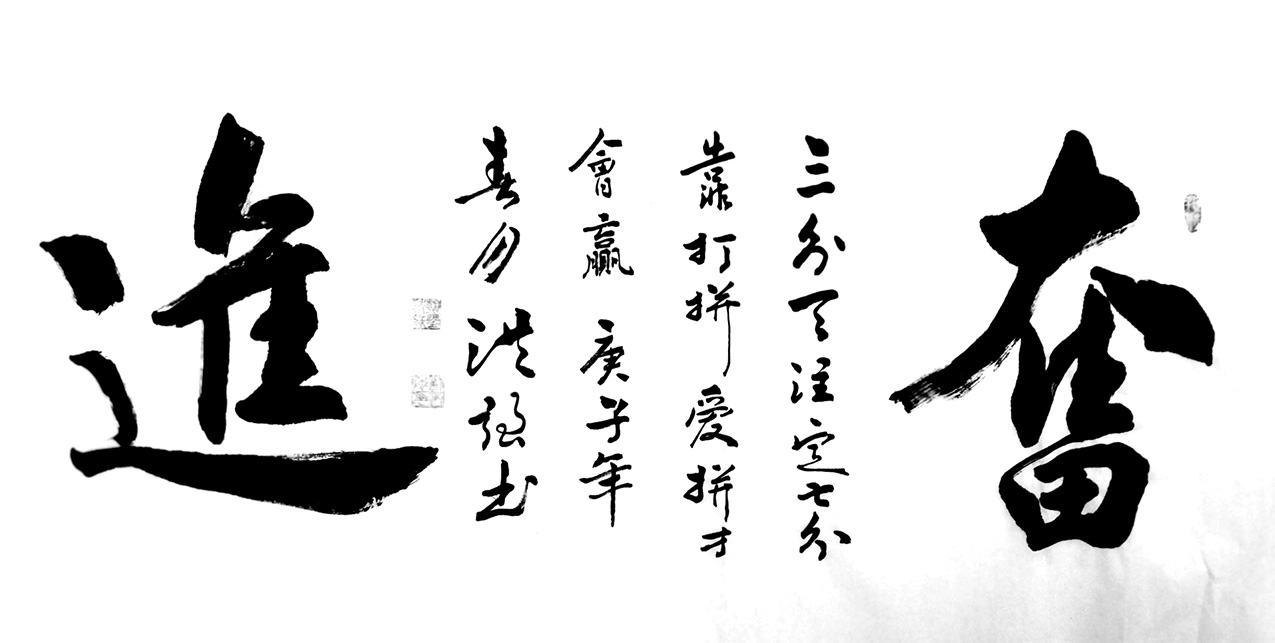 奮
三分天注定七分
靠打拼愛拼才
會贏 庚子年
春月 洪强书
進